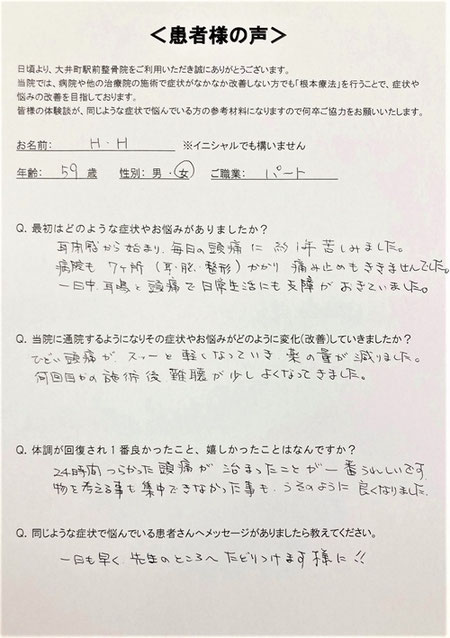 ＜患者様の声＞
日頃より、大井町駅前整骨院をご利用いただき誠にありがとうございます。
当院では、病院や他の治療院の施術で症状がなかなか改善しない方でも「根本療法」を行うことで、症状や
悩みの改善を目指しております。
皆様の体験談が、同じような症状で悩んでいる方の参考材料になりますので何卒ご協力をお願いいたします。
お名前： H・H ※イニシャルでも構いません
年齢： 59 歳 性別：男・女 ご職業： パート
Q. 最初はどのような症状やお悩みがありましたか？
耳閉感から始まり、毎日の頭痛に約1年苦しみました。
病院も 7ヶ所 (耳・脳・整形) かかり 痛み止めもききませんでした。
一日中、耳鳴と頭痛で日常生活にも支障がおきていました。
Q. 当院に通院するようになりその症状やお悩みがどのように変化(改善)していきましたか？
ひどい頭痛が、スーーと軽くなっていき 薬の量が減りました。
何回目かの施術後 難聴が少しよくなってきました。
Q. 体調が回復され１番良かったこと、嬉しかったことはなんですか？
24時間つらかった頭痛が 治まったことが一番うれしいです
物を考える事も集中できなかった事も、うそのように良くなりました.
Q. 同じような症状で悩んでいる患者さんへメッセージがありましたら教えてください。
一日も早く、先生のところへ たどりつけます様に!!